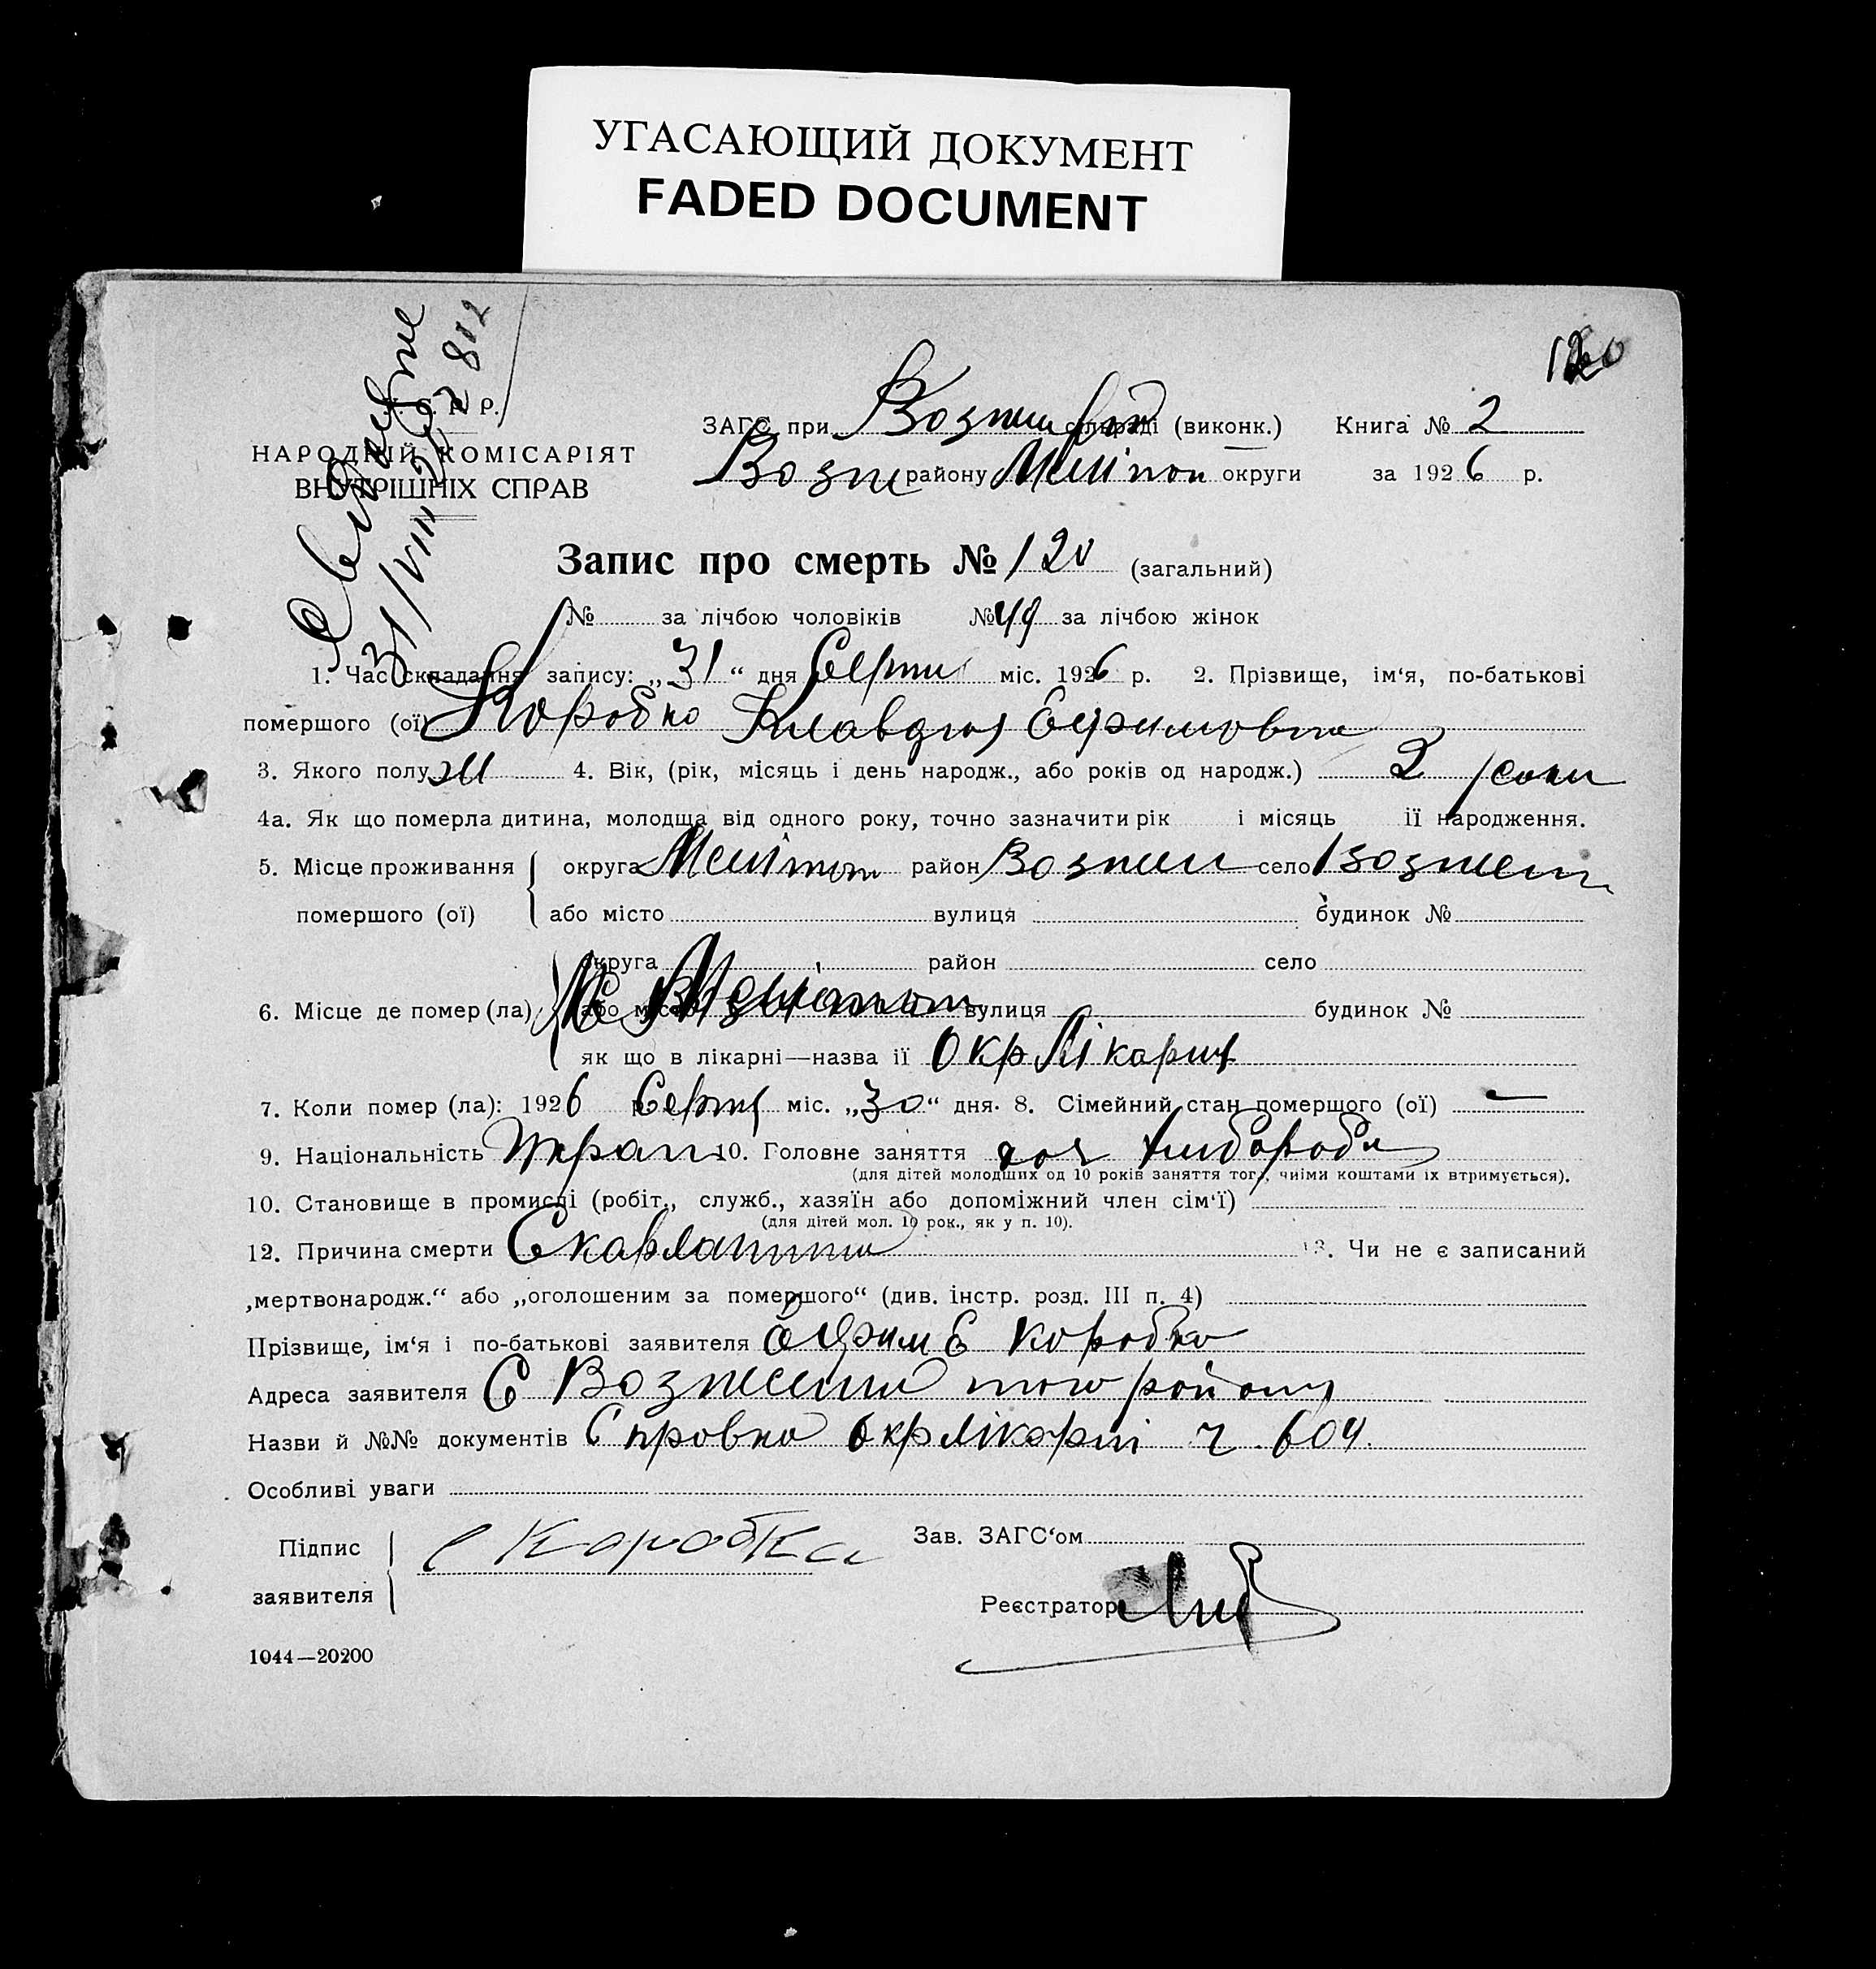 УГАСАЮЩИЙ ДОКУМЕНТ
FADED DOCUMENT
120
У. С. Р. Р.
НАРОДНІЙ КОМІСАРІЯТ
ВНУТРІШНІХ СПРАВ
31/VIII 2812
ЗАГС при Возне сільраді (виконк.) Книга № 2
Возне району Мелітоп округи за 1926 р.
Запис про смерть № 120 (загальний)
№ за лічбою чоловіків № 49 за лічбою жінок
1. Час складання запису: „31“ дня Серпня міс. 1926 р. 2. Прізвище, ім‘я, по-батькові
помершого (ої) Коробко Клавдия Ефимовна
3. Якого полу ж 4. Вік, (рік, місяць і день народж., або років од народж.) 2 роки
4а. Як що померла дитина, молодща від одного року, точно зазначити рік і місяць ії народження.
5. Місце проживання округа Мелітоп район Вознесен село Вознесен
помершого (ої) або місто вулиця будинок №
округа район село
6. Місце де помер (ла) або місто Мелітополь вулиця будинок №
як що в лікарні—назва ії Окр Лікарня
7. Коли помер (ла): 1926 р. Серпня міс. „30“ дня. 8. Сімейний стан помершого (ої) —
9. Національність Украін 10. Головне заняття доч хлибороба
(для дітей молодших од 10 років заняття того, чиїми коштами іх втримується).
10. Становище в промислі (робіт., служб., хазяїн або допоміжний член сім‘ї)
(для дітей мол. 10 рок., як у п. 10).
12. Причина смерти Скарлатина 13. Чи не є записаний
„мертвонародж.“ або „оголошеним за помершого“ (див. інстр. розд. III п. 4)
Прізвище, ім‘я і по-батькові заявителя Ефим Е Коробко
Адреса заявителя С Вознесенка того району
Назви й №№ документів Справка Окрлікарні ч. 604.
Особливі уваги
Підпис Е Коробка Зав. ЗАГС‘ом
заявителя
Реєстратор
1044—20200